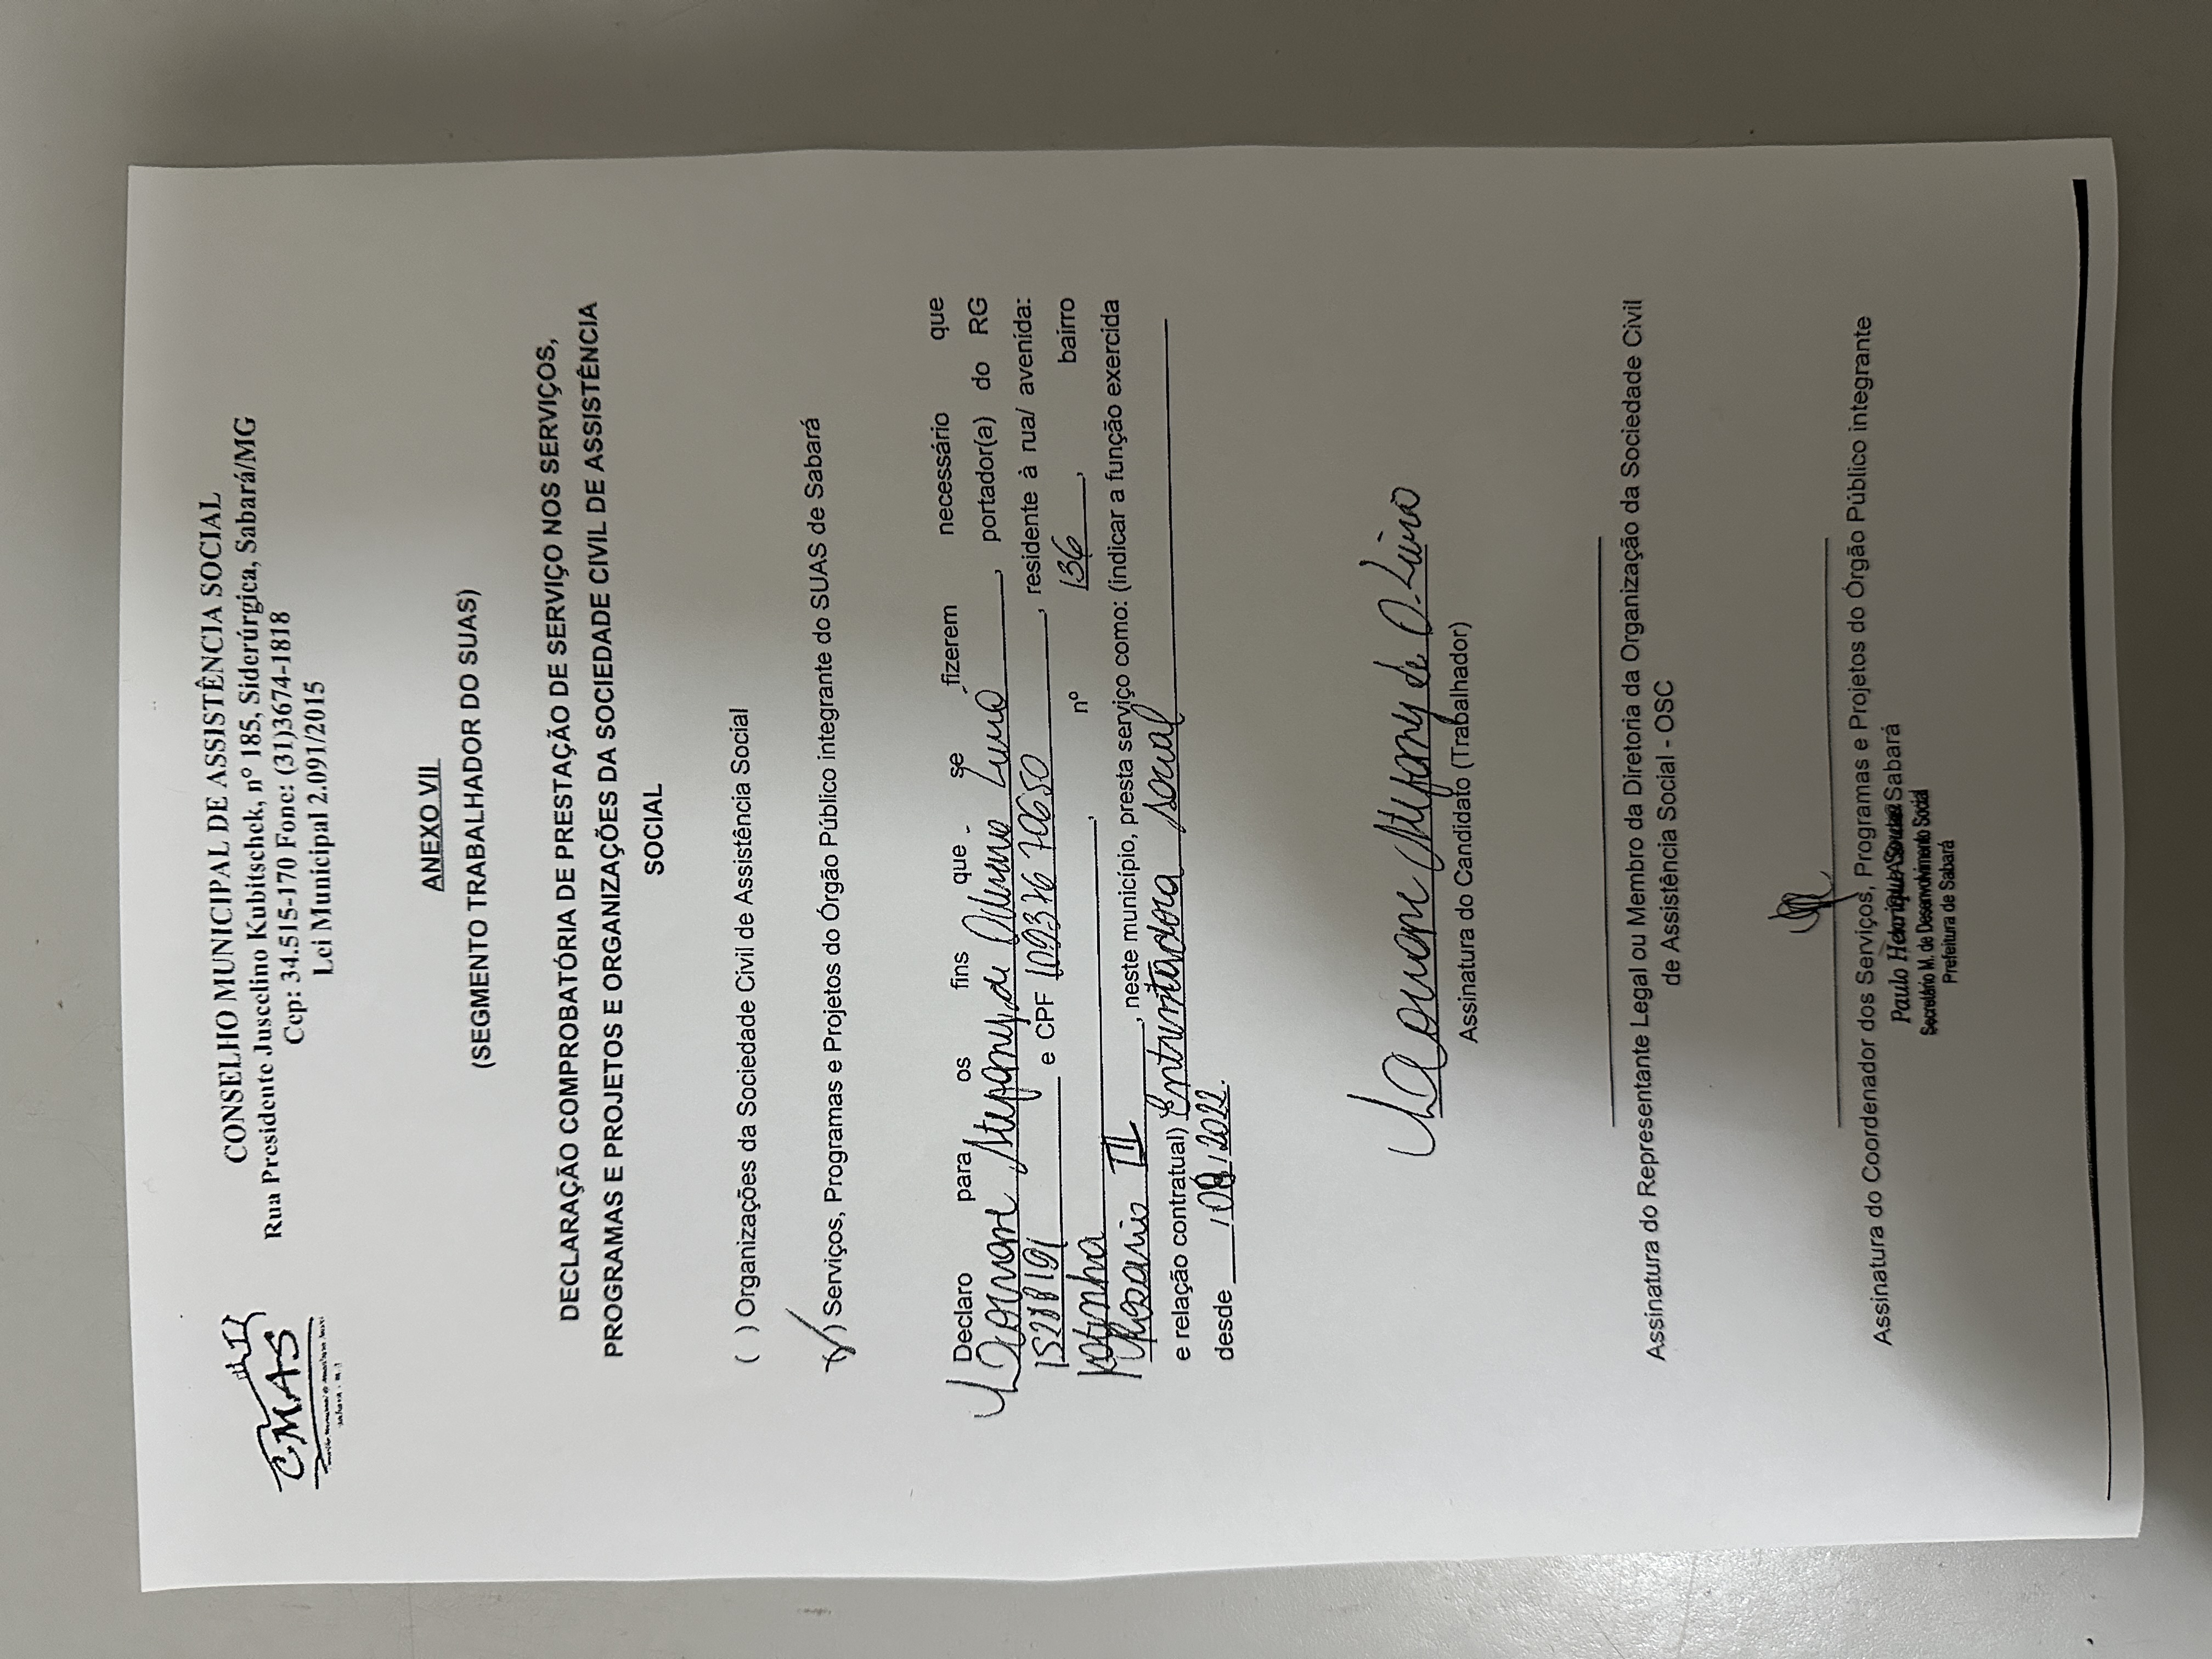 CMAS
CONSELHO MUNICIPAL DE ASSISTÊNCIA SOCIAL
Rua Presidente Juscelino Kubitschek, nº 185, Siderúrgica, Sabará/MG
Cep: 34.515-170 Fone: (31)3674-1818
Lei Municipal 2.091/2015
ANEXO VII
(SEGMENTO TRABALHADOR DO SUAS)
DECLARAÇÃO COMPROBATÓRIA DE PRESTAÇÃO DE SERVIÇO NOS SERVIÇOS,
PROGRAMAS E PROJETOS E ORGANIZAÇÕES DA SOCIEDADE CIVIL DE ASSISTÊNCIA
SOCIAL
( ) Organizações da Sociedade Civil de Assistência Social
(✓) Serviços, Programas e Projetos do Órgão Público integrante do SUAS de Sabará
Declaro para os fins que se fizerem necessário que
Stefany de , portador(a) do RG
e CPF 10937670650, residente à rua/ avenida:
, nº 136, bairro
Rosario III, neste município, presta serviço como: (indicar a função exercida
e relação contratual) Entrevistadora social
desde ___/08/2022.
Stefany de O.
Assinatura do Candidato (Trabalhador)
Assinatura do Representante Legal ou Membro da Diretoria da Organização da Sociedade Civil
de Assistência Social - OSC
Assinatura do Coordenador dos Serviços, Programas e Projetos do Órgão Público integrante
Sabará
Paulo Henrique Souza
Secretário M. de Desenvolvimento Social
Prefeitura de Sabará